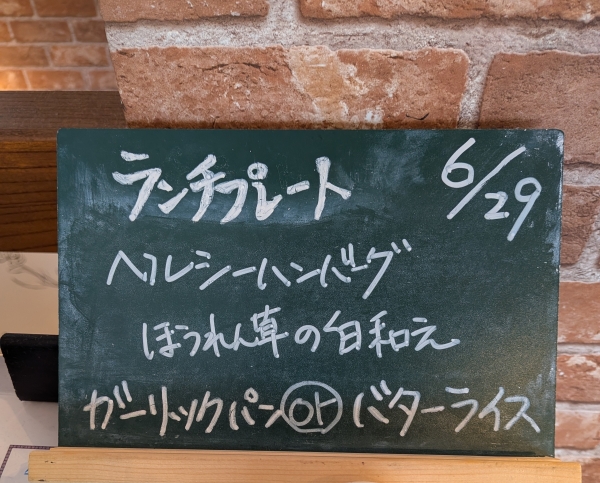 ランチプレート 6/29
ヘルシーハンバーグ
ほうれん草の白和え
ガーリックパン or バターライス